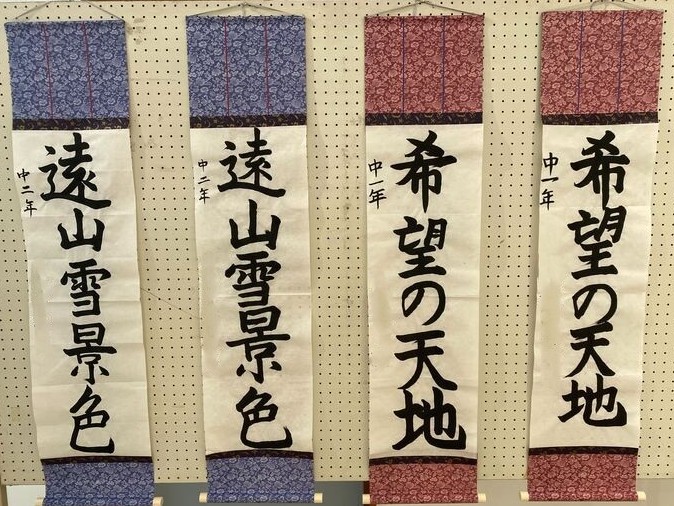 遠山雪景色
中二年
遠山雪景色
中二年
希望の天地
中一年
希望の天地
中一年